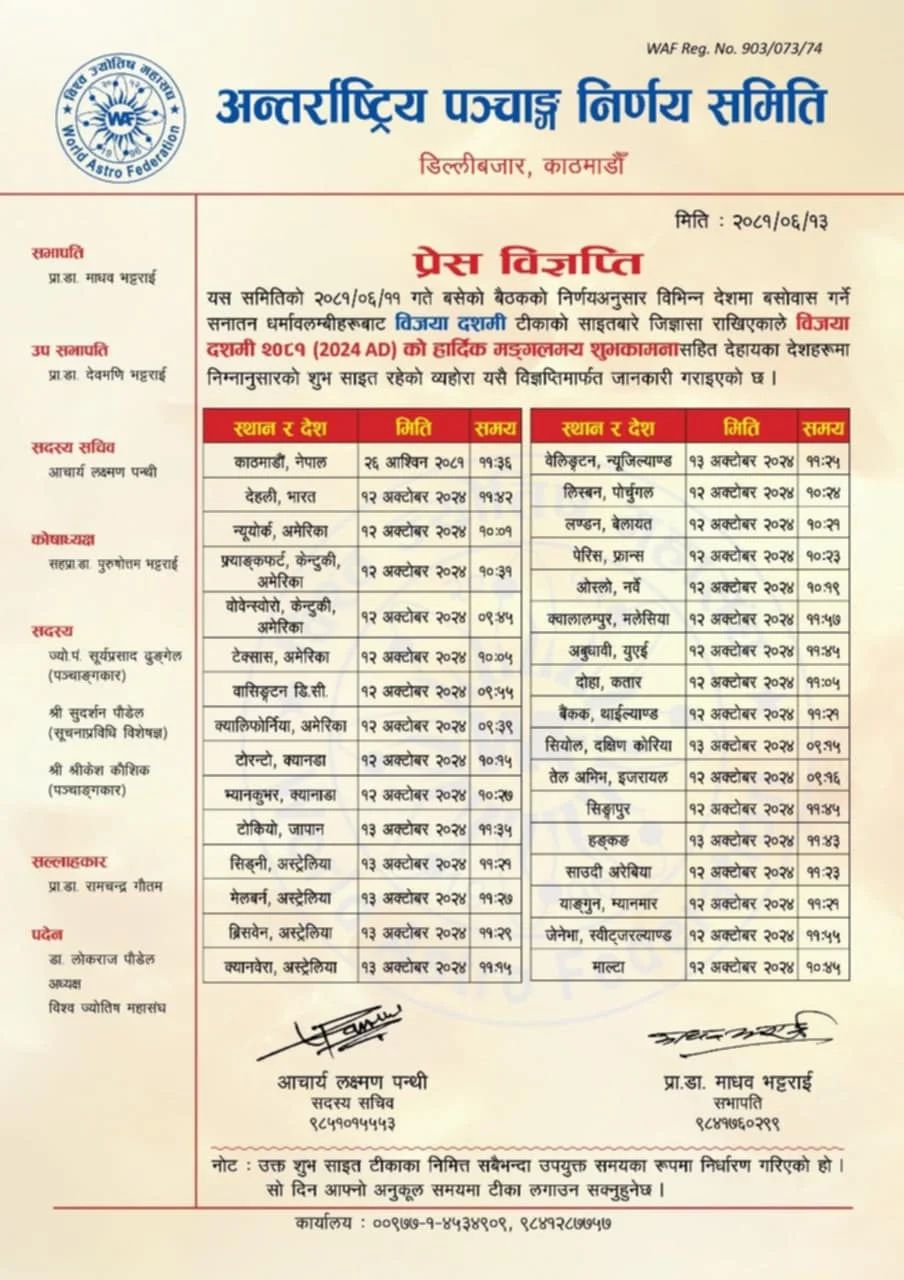 WAF Reg. No. 903/073/74
विश्व ज्योतिष महासंघ
WAF
World Astro Federation
अन्तर्राष्ट्रिय पञ्चाङ्ग निर्णय समिति
डिल्लीबजार, काठमाडौँ
मिति : २०८१/०६/१३
सभापति
प्रा.डा. माधव भट्टराई
उप सभापति
प्रा.डा. देवमणि भट्टराई
सदस्य सचिव
आचार्य लक्ष्मण पन्थी
कोषाध्यक्ष
सहप्रा.डा. पुरुषोत्तम भट्टराई
सदस्य
ज्यो.पं. सूर्यप्रसाद ढुङ्गेल
(पञ्चाङ्गकार)
श्री सुदर्शन पौडेल
(सूचनाप्रविधि विशेषज्ञ)
श्री श्रीकेश कौशिक
(पञ्चाङ्गकार)
सल्लाहकार
प्रा.डा. रामचन्द्र गौतम
पदेन
डा. लोकराज पौडेल
अध्यक्ष
विश्व ज्योतिष महासंघ
प्रेस विज्ञप्ति
यस समितिको २०८१/०६/११ गते बसेको बैठकको निर्णयअनुसार विभिन्न देशमा बसोवास गर्ने
सनातन धर्मावलम्बीहरूबाट विजया दशमी टीकाको साइतबारे जिज्ञासा राखिएकाले विजया
दशमी २०८१ (2024 AD) को हार्दिक मङ्गलमय शुभकामनासहित देहायका देशहरूमा
निम्नानुसारको शुभ साइत रहेको व्यहोरा यसै विज्ञप्तिमार्फत जानकारी गराइएको छ ।
स्थान र देश मिति समय
काठमाडौं, नेपाल २६ आश्विन २०८१ ११:३६
देहली, भारत १२ अक्टोबर २०२४ ११:४२
न्यूयोर्क, अमेरिका १२ अक्टोबर २०२४ १०:०१
फ्र्याङ्कफर्ट, केन्टुकी,
अमेरिका १२ अक्टोबर २०२४ १०:३१
वोवेन्स्वोरो, केन्टुकी,
अमेरिका १२ अक्टोबर २०२४ ०९:४५
टेक्सास, अमेरिका १२ अक्टोबर २०२४ १०:०५
वासिङ्टन डि.सी. १२ अक्टोबर २०२४ ०९:५५
क्यालिफोर्निया, अमेरिका १२ अक्टोबर २०२४ ०९:३९
टोरन्टो, क्यानडा १२ अक्टोबर २०२४ १०:१५
भ्यानकुभर, क्यानाडा १२ अक्टोबर २०२४ १०:२७
टोकियो, जापान १३ अक्टोबर २०२४ ११:३५
सिड्नी, अस्ट्रेलिया १३ अक्टोबर २०२४ ११:२१
मेलबर्न, अस्ट्रेलिया १३ अक्टोबर २०२४ ११:२७
ब्रिसवेन, अस्ट्रेलिया १३ अक्टोबर २०२४ ११:२९
क्यानवेरा, अस्ट्रेलिया १३ अक्टोबर २०२४ ११:१५
स्थान र देश मिति समय
वेलिङ्टन, न्यूजिल्याण्ड १३ अक्टोबर २०२४ ११:२५
लिस्बन, पोर्चुगल १२ अक्टोबर २०२४ १०:२४
लण्डन, बेलायत १२ अक्टोबर २०२४ १०:२१
पेरिस, फ्रान्स १२ अक्टोबर २०२४ १०:२३
ओस्लो, नर्वे १२ अक्टोबर २०२४ १०:१९
क्वालालम्पुर, मलेसिया १२ अक्टोबर २०२४ ११:५७
अबुधावी, युएई १२ अक्टोबर २०२४ ११:४५
दोहा, कतार १२ अक्टोबर २०२४ ११:०५
बैंकक, थाईल्याण्ड १२ अक्टोबर २०२४ ११:२१
सियोल, दक्षिण कोरिया १३ अक्टोबर २०२४ ०९:१५
तेल अभिभ, इजरायल १२ अक्टोबर २०२४ ०९:१६
सिङ्गापुर १२ अक्टोबर २०२४ ११:४५
हङ्कङ १३ अक्टोबर २०२४ ११:४३
साउदी अरेबिया १२ अक्टोबर २०२४ ११:२३
याङ्गुन, म्यानमार १२ अक्टोबर २०२४ ११:२१
जेनेभा, स्वीट्जरल्याण्ड १२ अक्टोबर २०२४ ११:५५
माल्टा १२ अक्टोबर २०२४ १०:४५
आचार्य लक्ष्मण पन्थी
सदस्य सचिव
९८५१०१५५५३
प्रा.डा. माधव भट्टराई
सभापति
९८४१७६०२९९
नोट : उक्त शुभ साइत टीकाका निमित्त सबैभन्दा उपयुक्त समयका रूपमा निर्धारण गरिएको हो ।
सो दिन आफ्नो अनुकूल समयमा टीका लगाउन सक्नुहुनेछ ।
कार्यालय : ००९७७-१-४५३४९०९, ९८४१२८७७५७